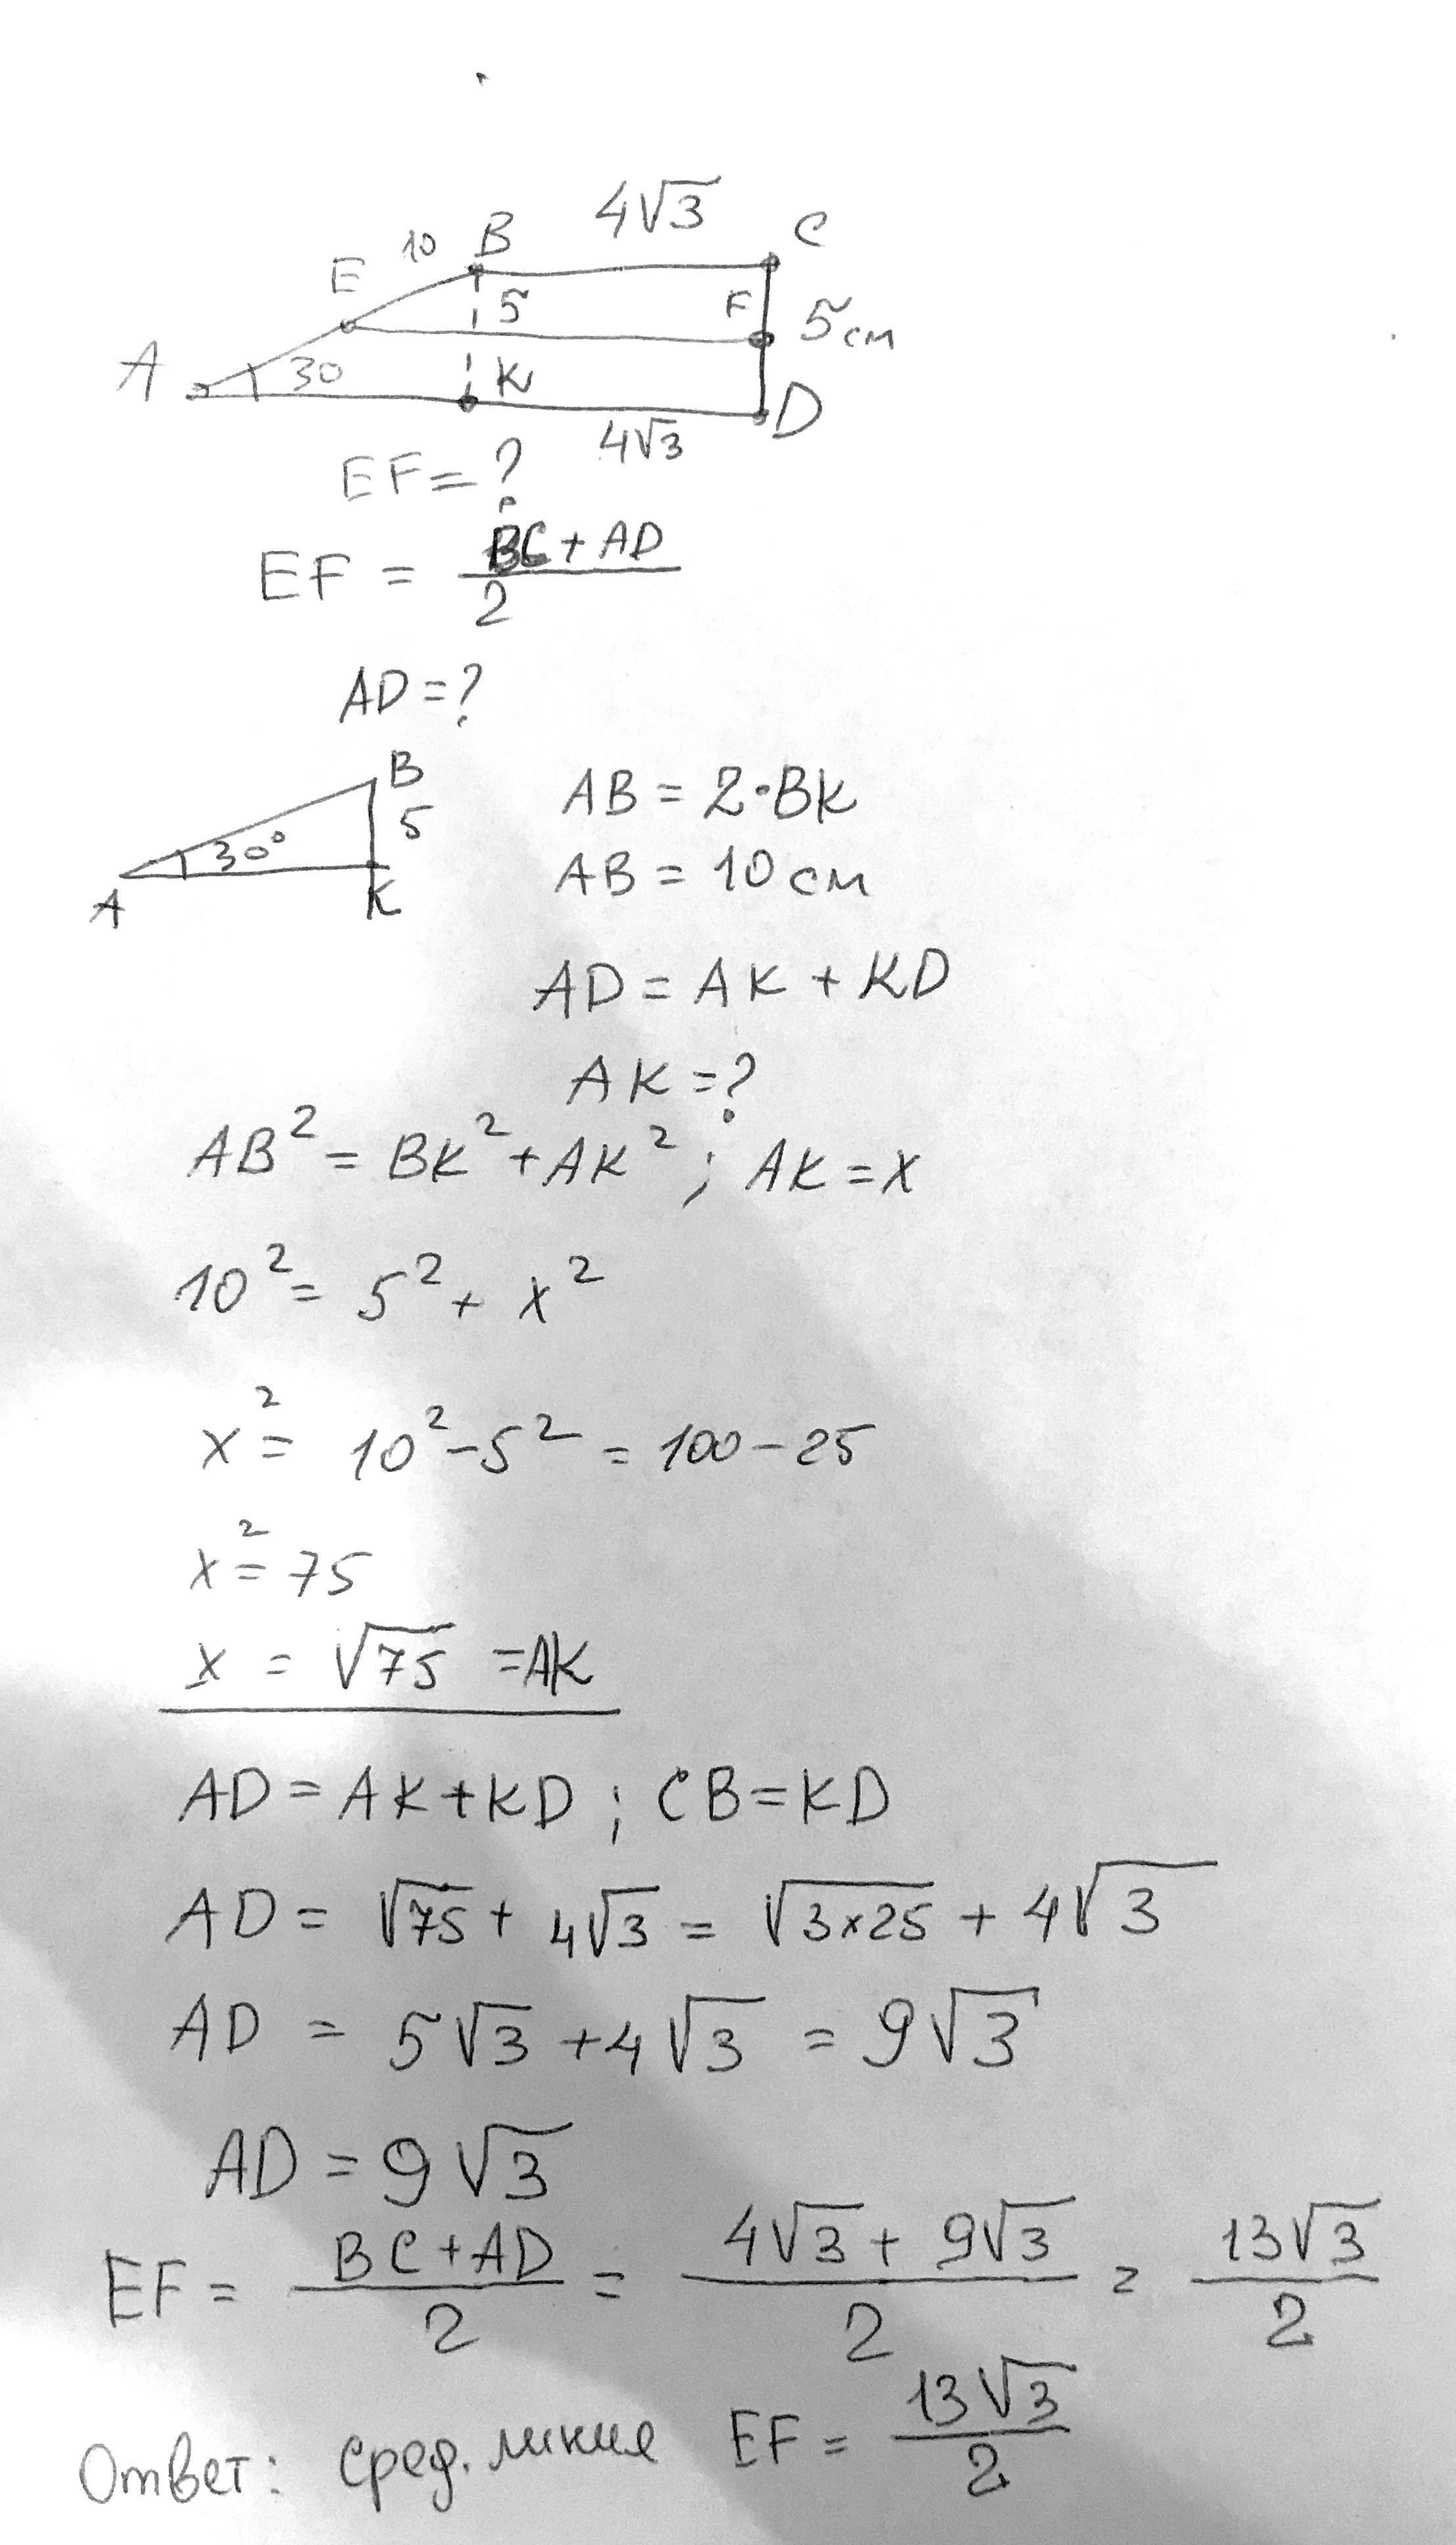 4√3
10 B C
E
5 F 5см
A 30 K D
4√3
EF = ?
EF = (BC + AD)/2
AD = ?
B
5
30°
A K
AB = 2·BK
AB = 10 см
AD = AK + KD
AK = ?
AB² = BK² + AK² ; AK = x
10² = 5² + x²
x² = 10² - 5² = 100 - 25
x² = 75
x = √75 = AK
AD = AK + KD ; CB = KD
AD = √75 + 4√3 = √3×25 + 4√3
AD = 5√3 + 4√3 = 9√3
AD = 9√3
EF = (BC + AD)/2 = (4√3 + 9√3)/2 = 13√3/2
Ответ: сред. линия EF = 13√3/2